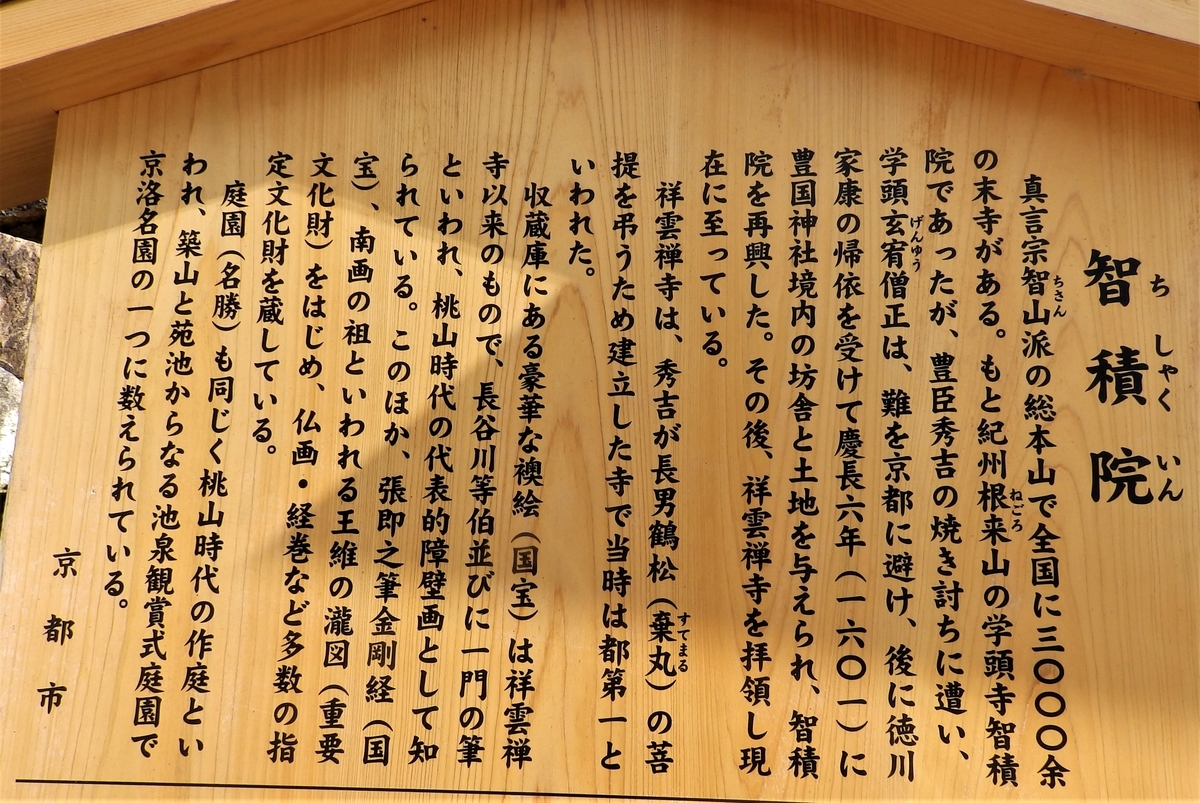 智積院
ちしゃくいん
真言宗智山派の総本山で全国に三〇〇〇余
ちさん
の末寺がある。もと紀州根来山の学頭寺智積
ねごろ
院であったが、豊臣秀吉の焼き討ちに遭い、
学頭玄宥僧正は、難を京都に避け、後に徳川
げんゆう
家康の帰依を受けて慶長六年（一六〇一）に
豊国神社境内の坊舎と土地を与えられ、智積
院を再興した。その後、祥雲禅寺を拝領し現
在に至っている。
祥雲禅寺は、秀吉が長男鶴松（棄丸）の菩
すてまる
提を弔うため建立した寺で当時は都第一と
いわれた。
収蔵庫にある豪華な襖絵（国宝）は祥雲禅
寺以来のもので、長谷川等伯並びに一門の筆
といわれ、桃山時代の代表的障壁画として知
られている。このほか、張即之筆金剛経（国
宝）、南画の祖といわれる王維の瀧図（重要
文化財）をはじめ、仏画・経巻など多数の指
定文化財を蔵している。
庭園（名勝）も同じく桃山時代の作庭とい
われ、築山と苑池からなる池泉観賞式庭園で
京洛名園の一つに数えられている。
京都市